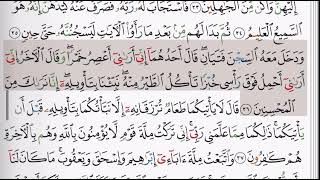 إِلَيْهِنَّ وَأَكُن مِّنَ ٱلْجَٰهِلِينَ ٣٣ فَٱسْتَجَابَ لَهُۥ رَبُّهُۥ فَصَرَفَ عَنْهُ كَيْدَهُنَّ إِنَّهُۥ هُوَ
ٱلسَّمِيعُ ٱلْعَلِيمُ ٣٤ ثُمَّ بَدَا لَهُم مِّنۢ بَعْدِ مَا رَأَوُا۟ ٱلْءَايَٰتِ لَيَسْجُنُنَّهُۥ حَتَّىٰ حِينٍ ٣٥
وَدَخَلَ مَعَهُ ٱلسِّجْنَ فَتَيَانِ قَالَ أَحَدُهُمَآ إِنِّىٓ أَرَىٰنِىٓ أَعْصِرُ خَمْرًا وَقَالَ ٱلْءَاخَرُ إِنِّىٓ
أَرَىٰنِىٓ أَحْمِلُ فَوْقَ رَأْسِى خُبْزًا تَأْكُلُ ٱلطَّيْرُ مِنْهُ نَبِّئْنَا بِتَأْوِيلِهِۦٓ إِنَّا نَرَىٰكَ مِنَ
ٱلْمُحْسِنِينَ ٣٦ قَالَ لَا يَأْتِيكُمَا طَعَامٌ تُرْزَقَانِهِۦٓ إِلَّا نَبَّأْتُكُمَا بِتَأْوِيلِهِۦ قَبْلَ أَن
يَأْتِيَكُمَا ذَٰلِكُمَا مِمَّا عَلَّمَنِى رَبِّىٓ إِنِّى تَرَكْتُ مِلَّةَ قَوْمٍ لَّا يُؤْمِنُونَ بِٱللَّهِ وَهُم بِٱلْءَاخِرَةِ
هُمْ كَٰفِرُونَ ٣٧ وَٱتَّبَعْتُ مِلَّةَ ءَابَآءِىٓ إِبْرَٰهِيمَ وَإِسْحَٰقَ وَيَعْقُوبَ مَا كَانَ لَنَآ